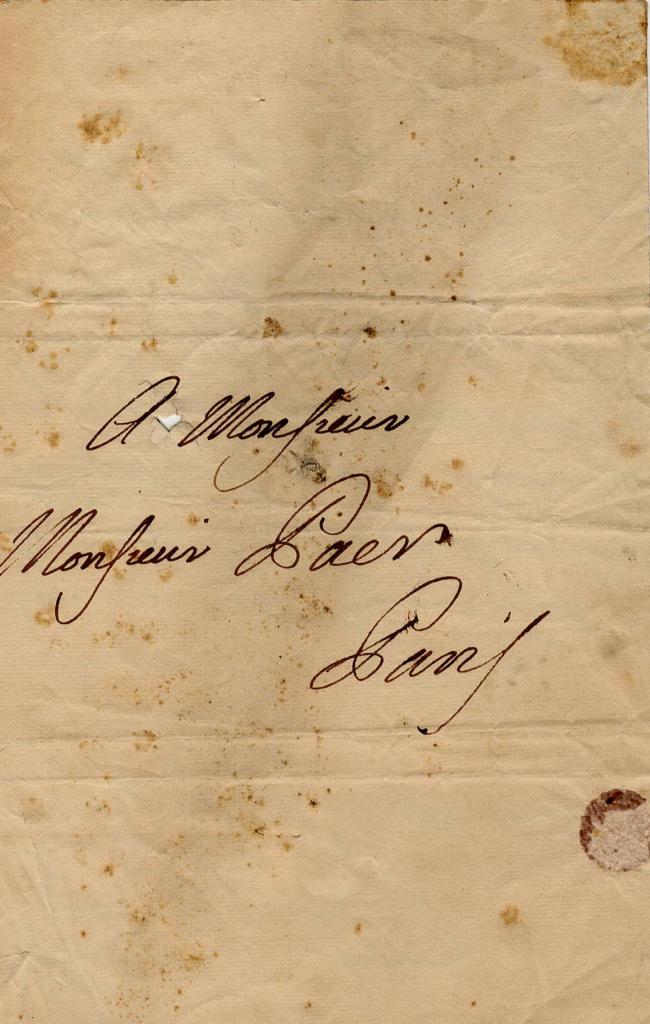 A Monsieur
Monsieur Paer
Paris